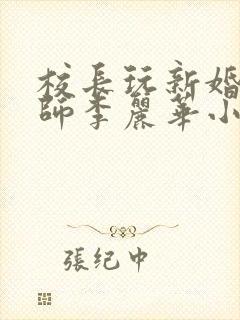 校長玩新婚
師李麗華小
張纪中